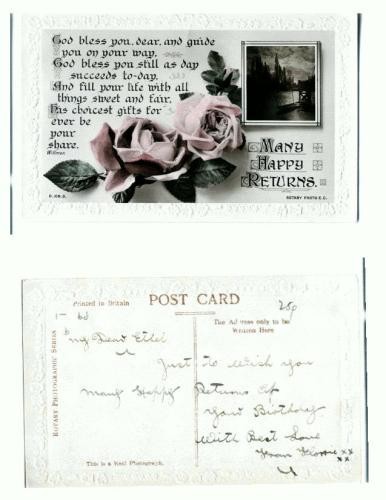 God bless you, dear, and guide
you on your way,
God bless you still as day
succeeds to-day,
And fill your life with all
things sweet and fair,
His choicest gifts for
ever be
your
share.
MANY
HAPPY
RETURNS.
ROTARY PHOTO E.C.
Printed in Britain
POST CARD
The Address only to be
Written Here
ROTARY PHOTOGRAPHIC SERIES
My Dear Ethel
Just to Wish you
Many Happy Returns of
Your Birthday
With Best Love
From xx
xx
This is a Real Photograph.